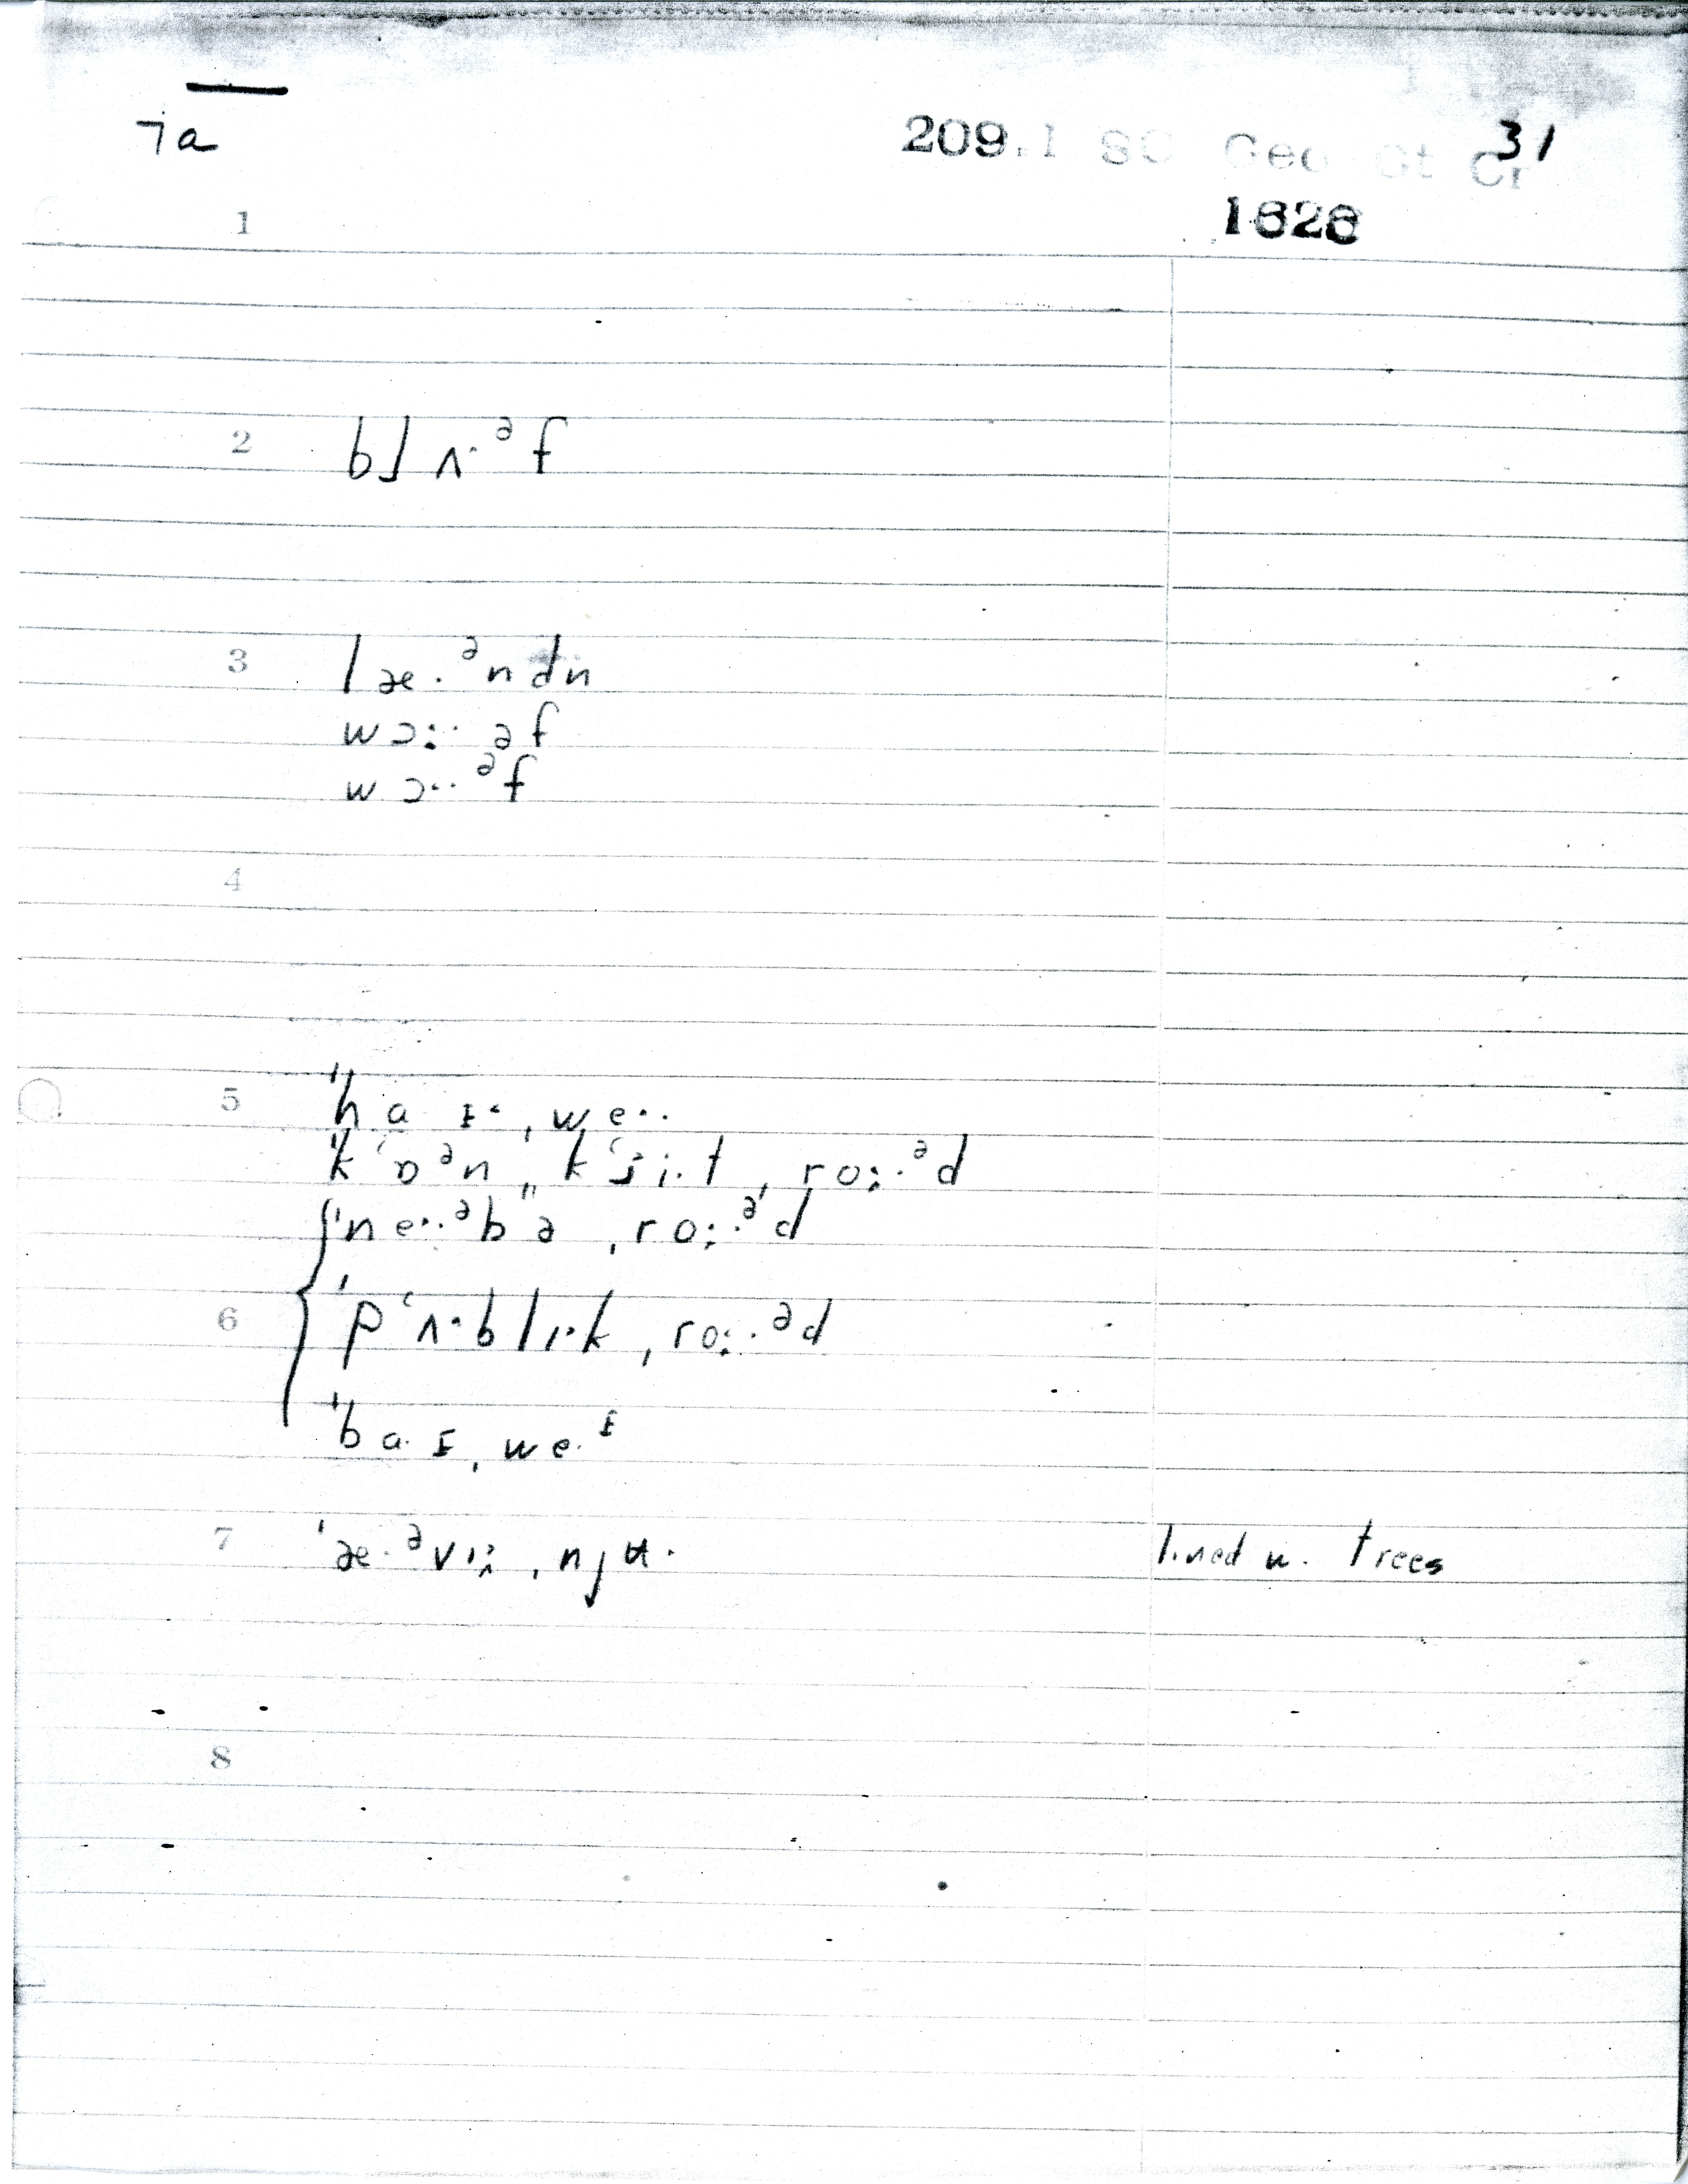 7a
209.1 SC Geo St Cr 31
1628
1
2 bl ʌ·ᵊf
3 læ·ᵊndn
wɔ:·· əf
wɔ··ᵊf
4
5 "haɪ·ˌwe··
"k‘ɒᵊnˌˌk‘ji·tˌro:·ᵊd
ˈne··ᵊb"əˌro:·ᵊd
6 'p‘ʌ·blɪ·kˌro:·ᵊd
'ba·ɪˌwe·ᶦ
7 'æ·ᵊvɪ:ˌnjʉ· lined w. trees
8